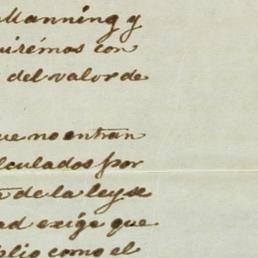 Manning y
uirémos con
del valor de
ue no entran
lculados por
de la ley se
ad exige que
blio como el